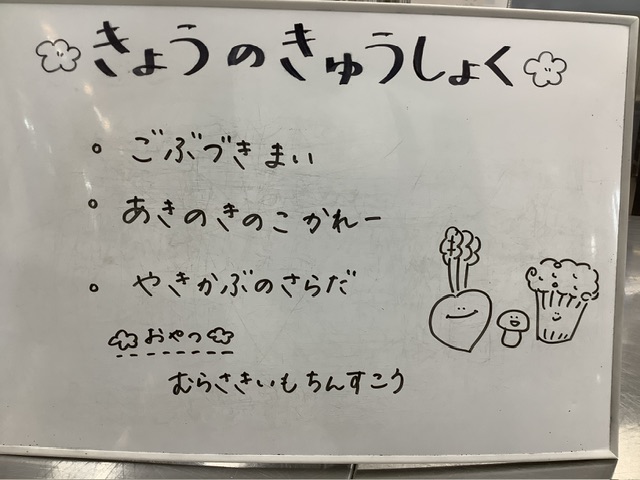 きょうのきゅうしょく
。ごぶづきまい
。あきのきのこかれー
。やきかぶのさらだ
おやつ
むらさきいもちんすこう